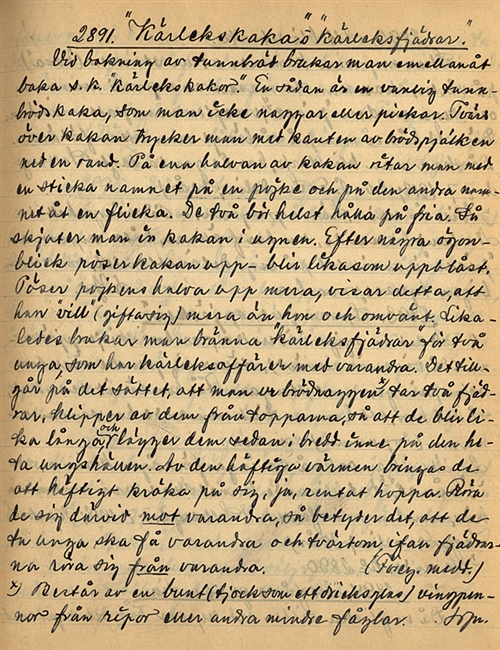 2891. "Kärlekskaka" o "kärleksfjädrar."
Vid bakning av tunnbröd brukar man emellanåt
baka s.k. "kärlekskakor". En sådan är en vanlig tunn-
brödskaka, som man icke naggar eller pickar. Tvärs
över kakan trycker man med kanten av brödspjälken
ned en rand. På ena halvan av kakan ritar man med
en sticka namnet på en pojke och på den andra nam-
net åt en flicka. De två bör helst hålla på fria. Så
skjuter man in kakan i ugnen. Efter några ögon-
blick pöser kakan upp - blir likasom uppblåst.
Pöser pojkens halva upp mera, visar detta, att
han "vill" (gifta sig) mera än hon och omvänt. Lika-
ledes brukar man bränna "kärleksfjädrar" för två
unga som har kärleksaffärer med varandra. Det till-
går på det sättet, att man ur brödnaggen x) tar två fjäd-
rar, klipper av dem från topparna, så att de blir li-
ka långa, och lägger dem sedan i bredd inne på den he-
ta ugnshällen. Av den häftiga värmen bringas de
att häftigt kröka på sig, ja, rentat hoppa. Röra
de sig därvid mot varandra, så betyder det, att de
två unga ska få varandra och tvärtom ifall fjädrar-
na röra sig från varandra. (Föreg. medd.)
x) Består av en bunt (tjock som ett dricksglas) vingpen-
nor från ripor eller andra mindre fåglar.